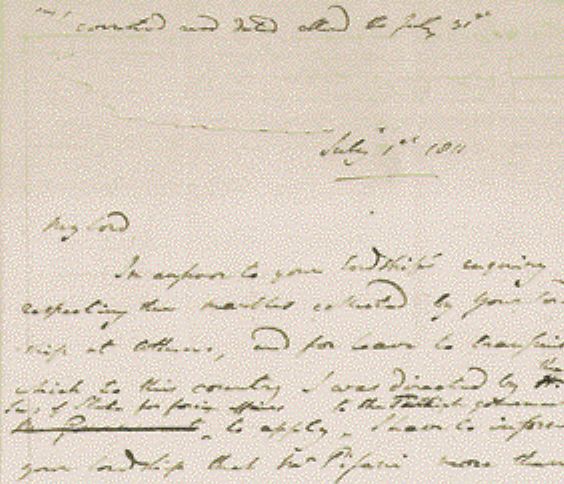 corrected and dated altered to July 31st
July 1st 1811
My Lord
In answer to your lordship's enquiry
respecting the marbles collected by your Lord
ship at Athens, and for leave to transport
which to this country I was directed by the
Secy of State for foreign affairs to the Turkish governmen
to apply, I have to inform
your lordship that Mr Pisani more than